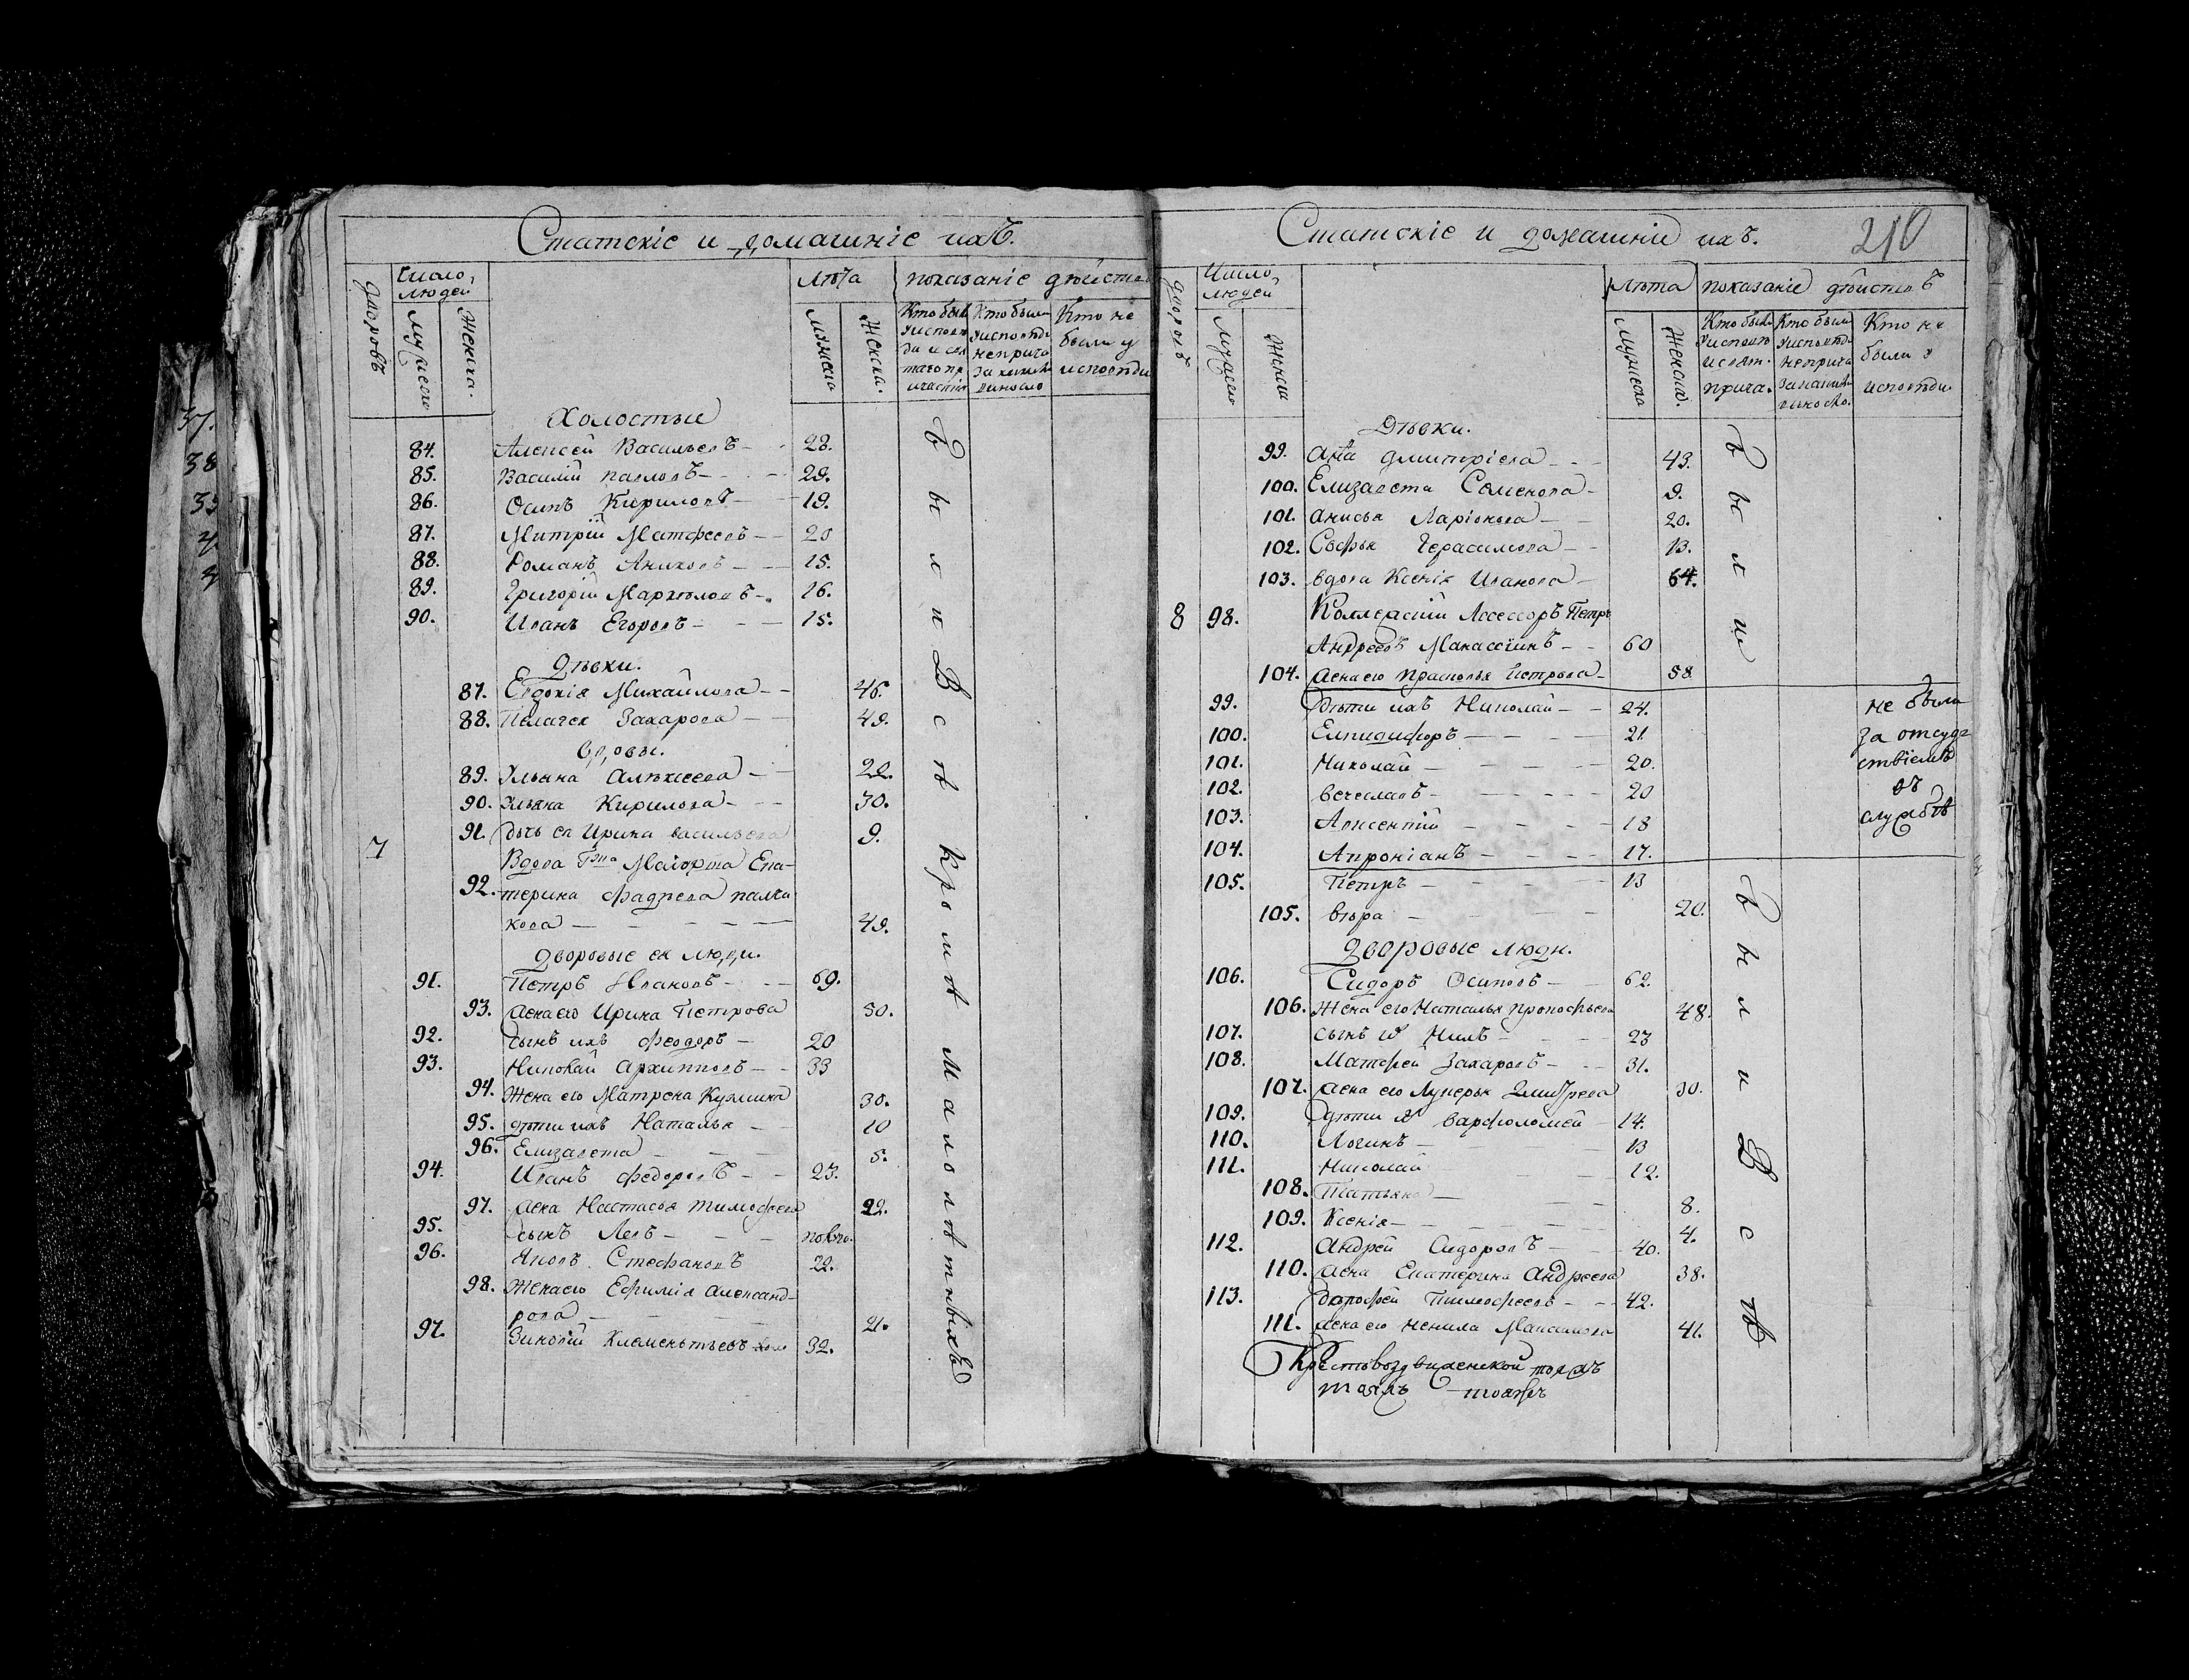 37.
38
Статскіе и домашніе ихъ.
дворовъ
Число людей
мужеска
женска.
лѣта
мужеска
женска.
показаніе дѣйства
Кто былъ у исповѣди и святаго причастія
Кто были у исповѣди не прича
Кто не были у исповѣди
Холостые
84. Алексей Васильевъ 28.
85. Василій павловъ 29.
86. Осипъ Кириловъ 19.
87. Митрій Матфеевъ 20
88. Романъ 15.
89. Григорій 16.
90. Иванъ Егоровъ 15.
Дѣвки.
87. Евдокія Михайлова 46.
88. Пелагея Захарова 49.
вдовы.
89. Ульяна Алексеева 22.
90. Ульяна Кирилова 30.
91. дочь ея Ирина васильева 9.
7 Вдова Гжа Маіорша Ека-
92. терина палча
кова 49.
Дворовые ея люди.
91. Петръ Ивановъ 69.
93. жена его Ирина Петрова 50.
92. сынъ ихъ Феодоръ 20
93. Николай Архиповъ 33
94. Жена его Матрена Кузмина 30.
95. дѣти ихъ Наталья 10
96. Елизавета 5.
94. Иванъ Федоровъ 23.
97. жена Настасья Тимофеева 22.
95. сынъ Левъ полго.
96. Яковъ Стефановъ 22.
98. Жена его Ефимія Александ-
рова 21.
97. Зиновій Клементьевъ 32.
Были Всѣ Кромѣ Малолѣтныхъ
Статскіе и домашніе ихъ.
210
дворовъ
Число людей
мужеска
женска
лѣта
мужеска
женска.
показаніе дѣйствъ
Кто были у исповѣ и свят. прича.
Кто были у исповѣд не прича
Кто не были у исповѣди.
Дѣвки.
99. Анна дмитріева 43.
100. Елизавета Семенова 9.
101. анисья Ларіонова 20.
102. Софья Герасимова 13.
103. вдова Ксенія Иванова 64.
8 98. Коллежскій Ассессоръ Петръ
Андреевъ Манассеинъ 60
104. жена его Прасковья Петрова 58
99. дѣти ихъ Николай 24.
100. Елпидифоръ 21
101. Николай 20.
102. вечеславъ 20
103. 18
104. Апроніанъ 17.
не были
за отсуд-
ствіемъ
въ
службѣ
105. Петръ 13
105. вѣра 20.
Дворовые люди.
106. Сидоръ Осиповъ 62.
106. Жена его Наталья прокофьева 48.
107. сынъ Нилъ 23
108. Матфей Захаровъ 31.
107. жена его Лукерья Дмитрева 30.
109. дѣти варфоломей 14.
110. Логинъ 13
111. Николай 12.
108. Татьяна 8.
109. Ксенія 4.
112. Андрей Сидоровъ 40.
110. жена Екатерина Андреева 38.
113. дорофей Тимофеевъ 42.
111. жена его Ненила Максимова 41.
Были
Были Всѣ
Крестовоздвиженской